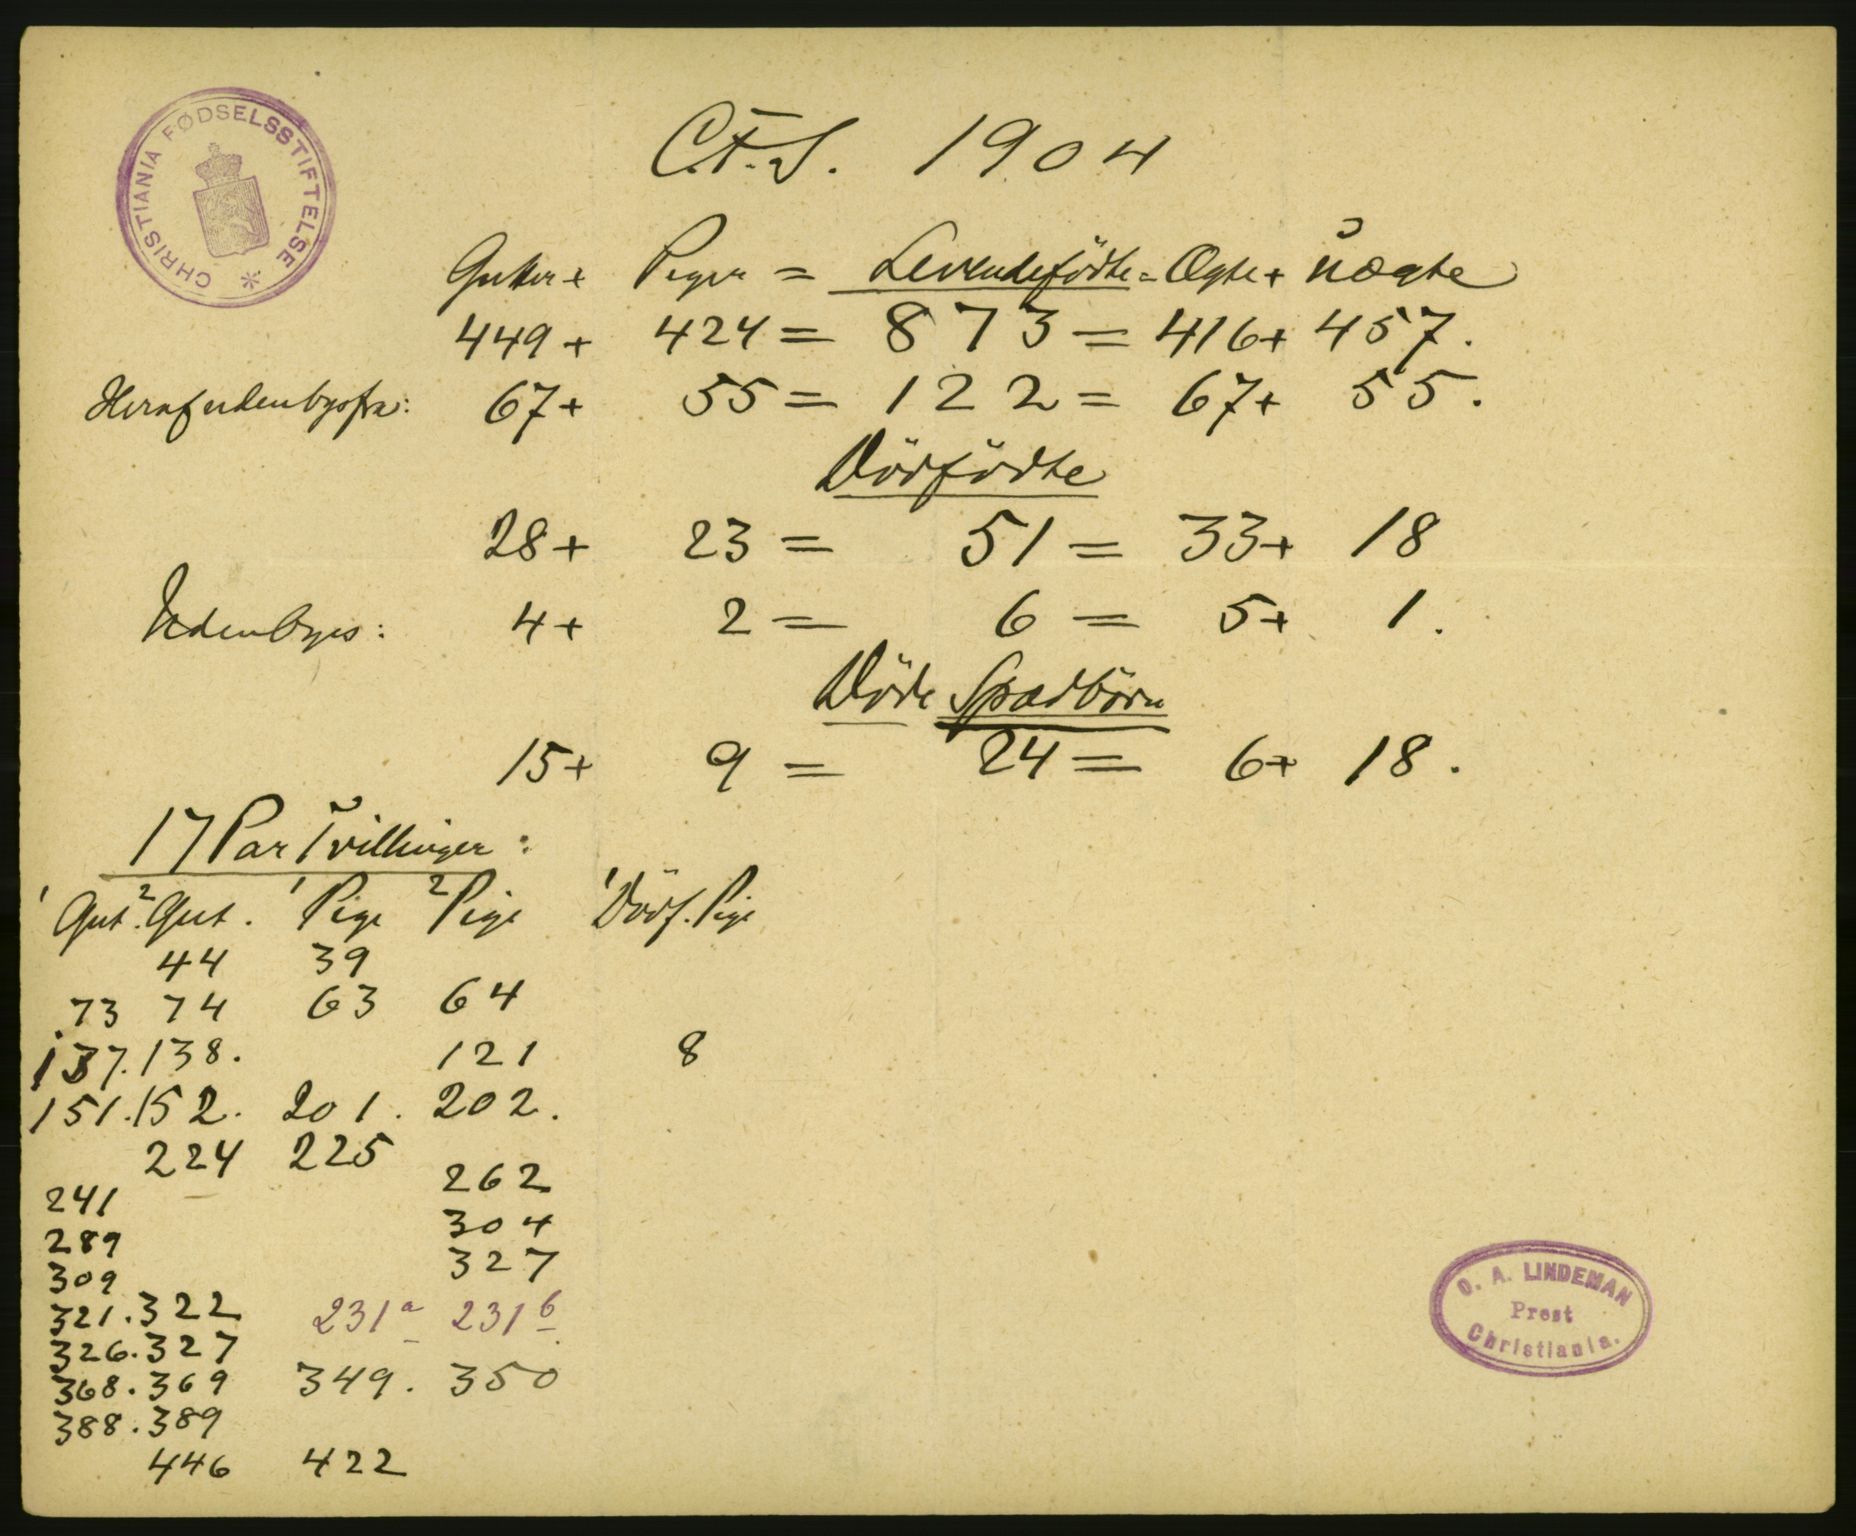 CHRISTIANIA FØDSELSSTIFTELSE *
C.F.S. 1904
Gutter + Piger = Levendefödte = Ægte + Uægte
449 + 424 = 873 = 416 + 457.
Heraf udenbysfra: 67 + 55 = 122 = 67 + 55.
Dödfödte
28 + 23 = 51 = 33 + 18
Udenbys: 4 + 2 = 6 = 5 + 1.
Döde Spædbörn
15 + 9 = 24 = 6 + 18.
17 Par Tvillinger:
1 Gut. 2 Gut. 1 Pige 2 Pige 1 Dödf. Pige
44 39
73 74 63 64
137. 138. 121 8
151. 152. 201. 202.
224 225
262
241
304
289
327
309
321. 322 231a 231b
326. 327
368. 369 349. 350
388. 389
446 422
O. A. LINDEMAN
Prest
Christiania.